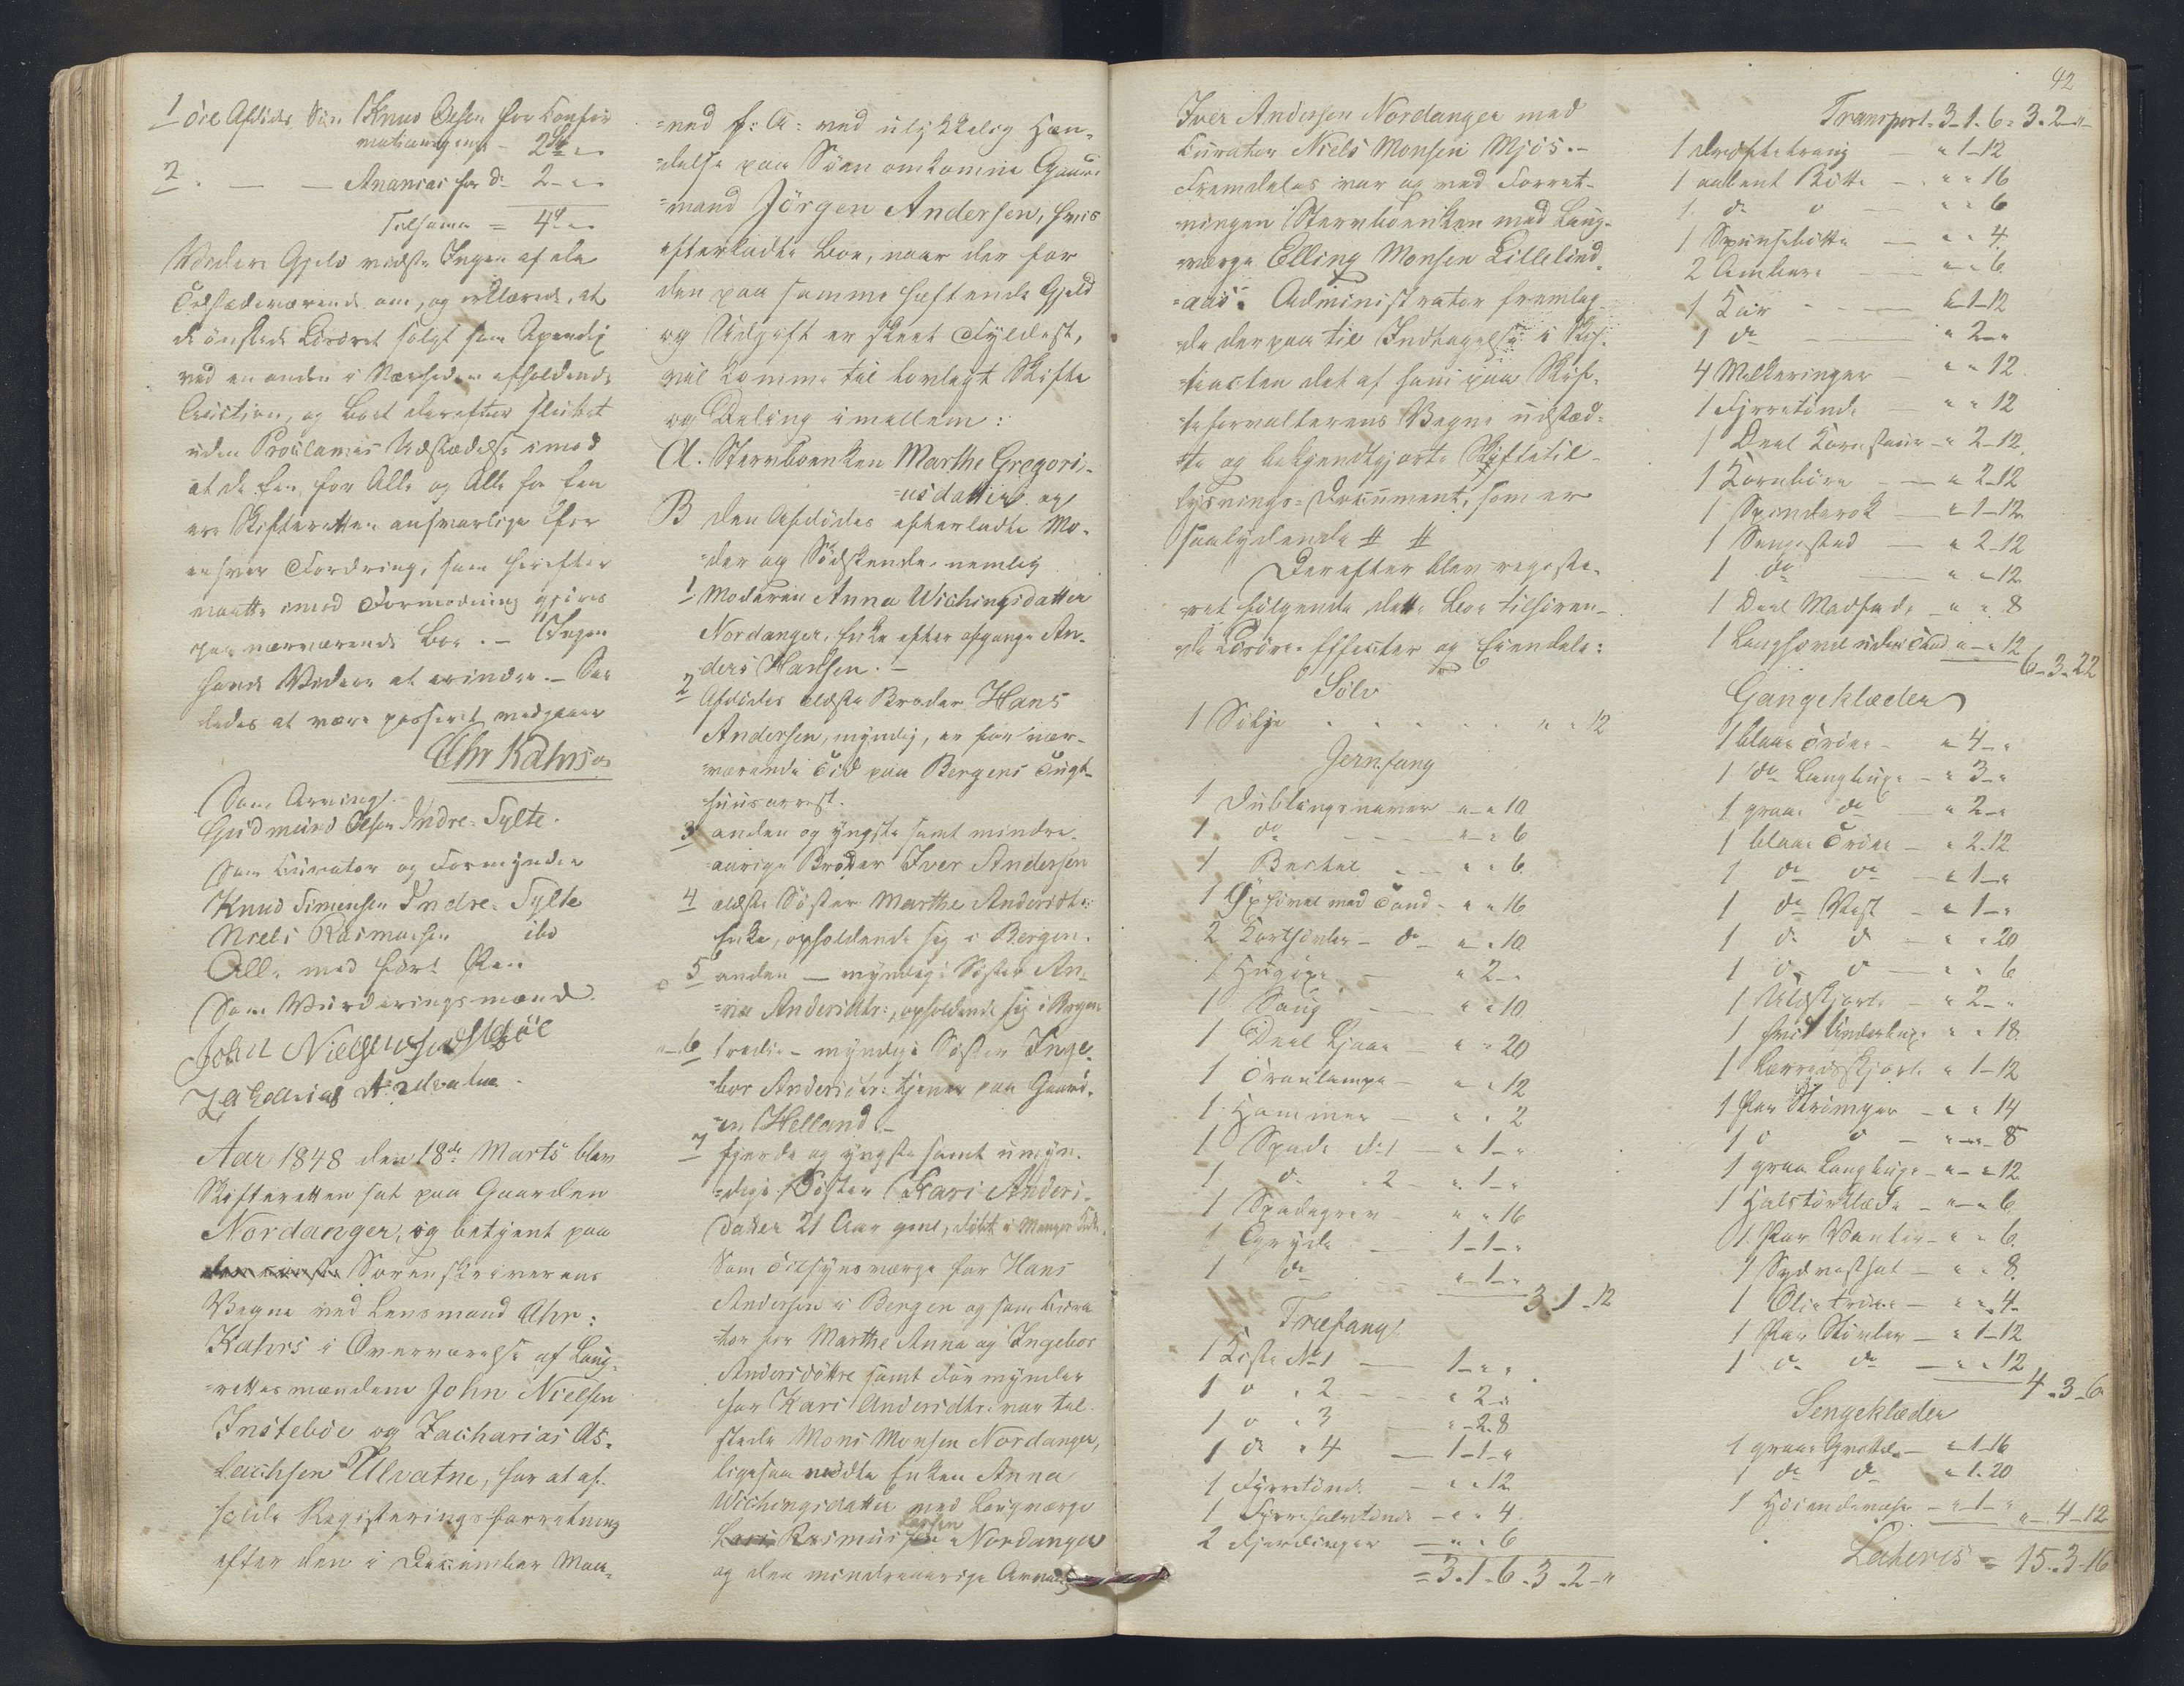 1 til Afdödes Sön Knud Olsen for Confir
mationspenge - 2 Sp "
2 - — — Ananias for do 2 - " -
Tilsammen = 4 " "
Videre Gjeld vidste Ingen af de
Tilstedeværende om, og erklærede, at
de önskede Lösöret solgt som Apendix
ved en anden i Nærheden afholdende
Auction, og Boet derefter sluttet
uden Proclamas Udstædelse imod
at de Een for Alle og Alle for Een
ere Skifteretten ansvarlige for
enhver Fordring, som herefter
maatte imod Formodning gjöres
paa nærværende Boe. - Ingen
havde Videre at erindre. - Saa
ledes at være passeret vedgaaer
Chr Kahrs
Som Arving
Gudmund Olsen Indre-Sylte.
Som Curator og Formynder
Knud Simensen Indre-Sylte
Niels Rasmussen ibd
Alle med förte Pen
Som Vurderingsmænd.
John Nielsen Insteböe
Zacharias A: Ulvatne.
Aar 1848 den 18de Marts blev
Skifteretten sat paa Gaarden
Nordanger, og betjent paa
Sorenskriverens
Vegne ved Lensmand Chr:
Kahrs i Overværelse af Laug-
rettesmændene John Nielsen
Insteböe og Zacharias As-
lachsen Ulvatne, for at af-
holde Registeringsforretning
efter den i December Maa-
=ned f: A: ved ulykkelig Hæn-
delse paa Söen omkomne Gaard-
=mand Jörgen Andersen, hvis
efterladte Boe, naar der for
den paa samme heftende Gjeld
og Udgift er skeet Fyldest,
vil komme til lovlagt Skifte
og Deling imellem:
A. Stervboenken Marthe Gregori-
=usdatter og
B den Afdödes efterladte Mo-
=der og Södskende, nemlig
1 Moderen Anna Wichingsdatter
Nordanger, Enke efter afgangne An-
ders Hansen. -
2 Afdödes ældste Broder Hans
Andersen, myndig, er for nær-
værende Tid paa Bergens Tugt-
huusarrest.
3 anden og yngste samt mindre-
aarige Broder Iver Andersen
4 ældste Söster Marthe Andersdtr:
Enke, opholdende sig i Bergen.
5 anden — myndige Söster An-
na Andersdtr:, opholdende sig i Bergen
6 tredie - myndige Söster Inge-
bor Andersdtr: tjener paa Gaard-
en Helland. -
7 fjerde og yngste samt umyn-
dige Söster Kari Anders-
datter 21 Aar gml, döbt i Manger Kirke.
Som Tilsynsværge for Hans
Andersen i Bergen og som Cura
tor for Marthe Anna og Ingebor
Andersdöttre samt Formynder
for Kari Andersdtr: var til
stede Mons Monsen Nordanger,
ligesaa mödte Enken Anna
Wichingsdatter med Laugværge
Larsen
Rasmus Nordanger
og den mindreaarige Arving
Iver Andersen Nordanger med
Curator Niels Monsen Mjös.-
Fremdeles var og ved Forret-
ningen Stervboenken med Laug-
værge Elling Monsen Lillelind-
aas. Administrator fremlag-
de derpaa til Indtagelse i Skif-
teacten det af ham paa Skif-
teforvalterens Vegne udstæd-
te og bekjendtgjorte Skiftetil-
lysnings-Document, som er
saalydende # #
Derefter blev registe-
ret fölgende dette Boe tilhören-
de Lösöre-Effecter og Eiendele:
Sölv
1 Silje . . . . . " " 12
Jernfang
1 Dublingsnaver " " 10
1 do — " " 6
1 " " 6
1 Öxhövel med Tand - " " 16
2 Korthövler - do - " " 10
1 Hugöxe — " 2 - "
1 Saug — " " 10
1 Deel Ljaae — " " 20
1 Tranlampe — " " 12
1 Hammer — " " 2
1 Spade No 1 — " 1 - "
1 do " 2 — " 1 - "
1 Spadegrev — " " 16
1 Gryde — 1 - 1 - "
1 do — " 1 - "
3 - 1 - 12
Træfang
1 Kiste No 1 — 1 - " "
1 do " 2 — " 2 - "
1 do " 3 — " 2 - 8
1 do " 4 — 1 - 1 - "
1 Fyrretönde — " " 12
1 Fyrrehalvtönde — " " 4
2 Fjerdinger — " " 6
= 3 . 1 - 6 . 3 . 2 - "
42
Transport. 3 - 1 . 6 . 3 . 2 - "
1 Dröftetroug — " 1 - 12
1 aabent Bötte — " " 16
1 do do — " " 6
1 — " " 4
2 Ambare — " " 6
1 Kar — " 1 - 12
1 do — " 2 - "
4 Melkeringer — " " 12
1 Fyrretönde — " " 12
1 Deel Kornstaur — " 2 - 12
1 Kornbinge — " 2 - 12
1 Spinderok — " 1 - 12
1 Sengested — " 2 - 12
1 do — " " 12
1 Deel Madfade — " " 8
1 Langhövel uden Tand " " 12
6 - 3 - 22
Gangeklæder
1 blaa Tröie — " 4 - "
1 do Langbuxe — " 3 - "
1 graa do — " 2 - "
1 blaa Tröie — " 2 . 12
1 do do — " 1 - "
1 do Vest — " 1 - "
1 do do — " " 20
1 do do — " " 6
1 Uldskjorte — " 2 - "
1 hvid Underbuxe " " 18
1 Lærredsskjorte " 1 - 12
1 Par Strömper — " " 14
1 do do — " " 8
1 graa Langbuxe — " " 12
1 Halstörklæde — " " 6
1 Par Vanter — " " 6
1 Sydvesthat — " " 8
1 Olietröie — " " 4
1 Par Stövler — " 1 - 12
1 do do — " " 12
4 - 3 - 6
Sengeklæder
1 graa Grotte — " 1 - 16
1 do do " 1 . 20
1 Höiendevær — " 1 - "
" 4 - 12
Lateris = 15 . 3 - 16